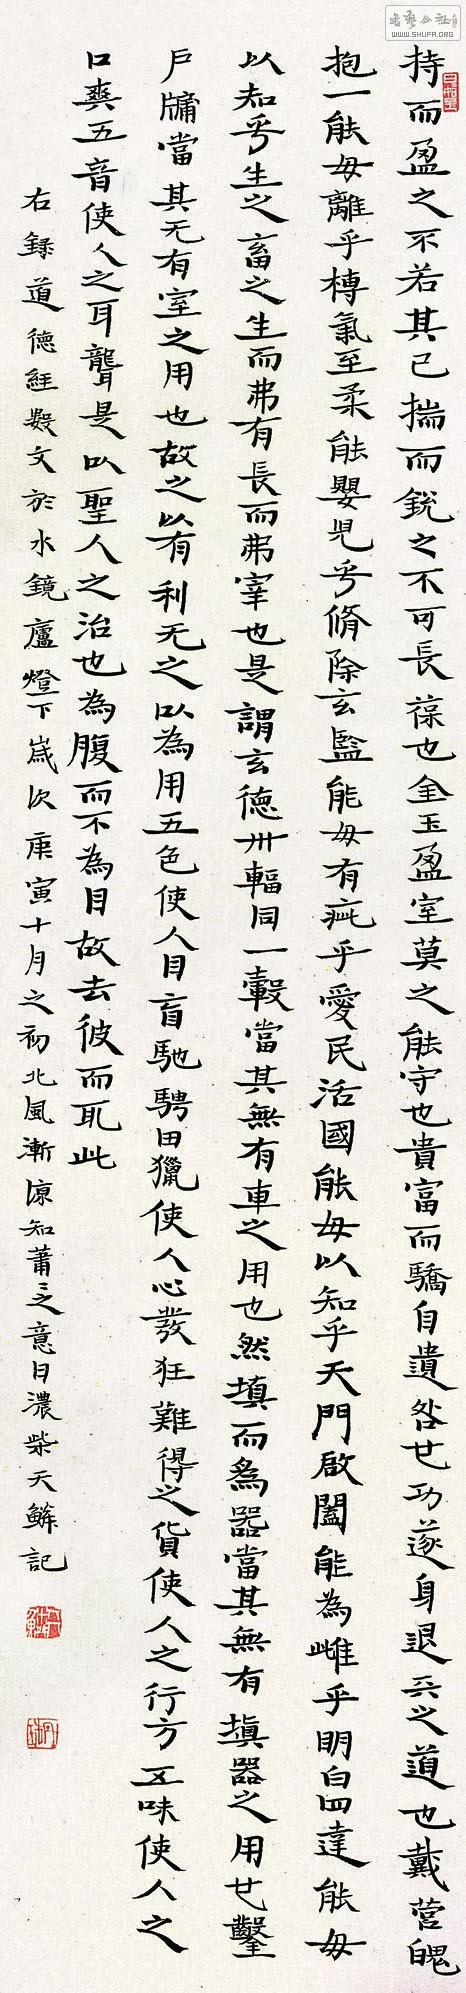 持而盈之不若其已揣而銳之不可長葆也金玉盈室莫之能守也貴富而驕自遺咎也功遂身退天之道也戴營魄
抱一能毋離乎槫氣至柔能嬰兒乎脩除玄監能毋有疵乎愛民活國能毋以知乎天門啟闔能為雌乎明白四達能毋
以知乎生之畜之生而弗有長而弗宰也是謂玄德卅輻同一轂當其無有車之用也然埴而為器當其無有埴器之用也鑿
戶牖當其无有室之用也故之以有利无之以為用五色使人目盲馳騁田獵使人心發狂難得之貨使人之行方五味使人之
口爽五音使人之耳聾是以聖人之治也為腹而不為目故去彼而取此
右錄道德經數文於水鏡廬燈下歲次庚寅十月之初北風漸涼知莆之意日濃柴天鱗記
書藝公社
WWW.SHUFA.ORG